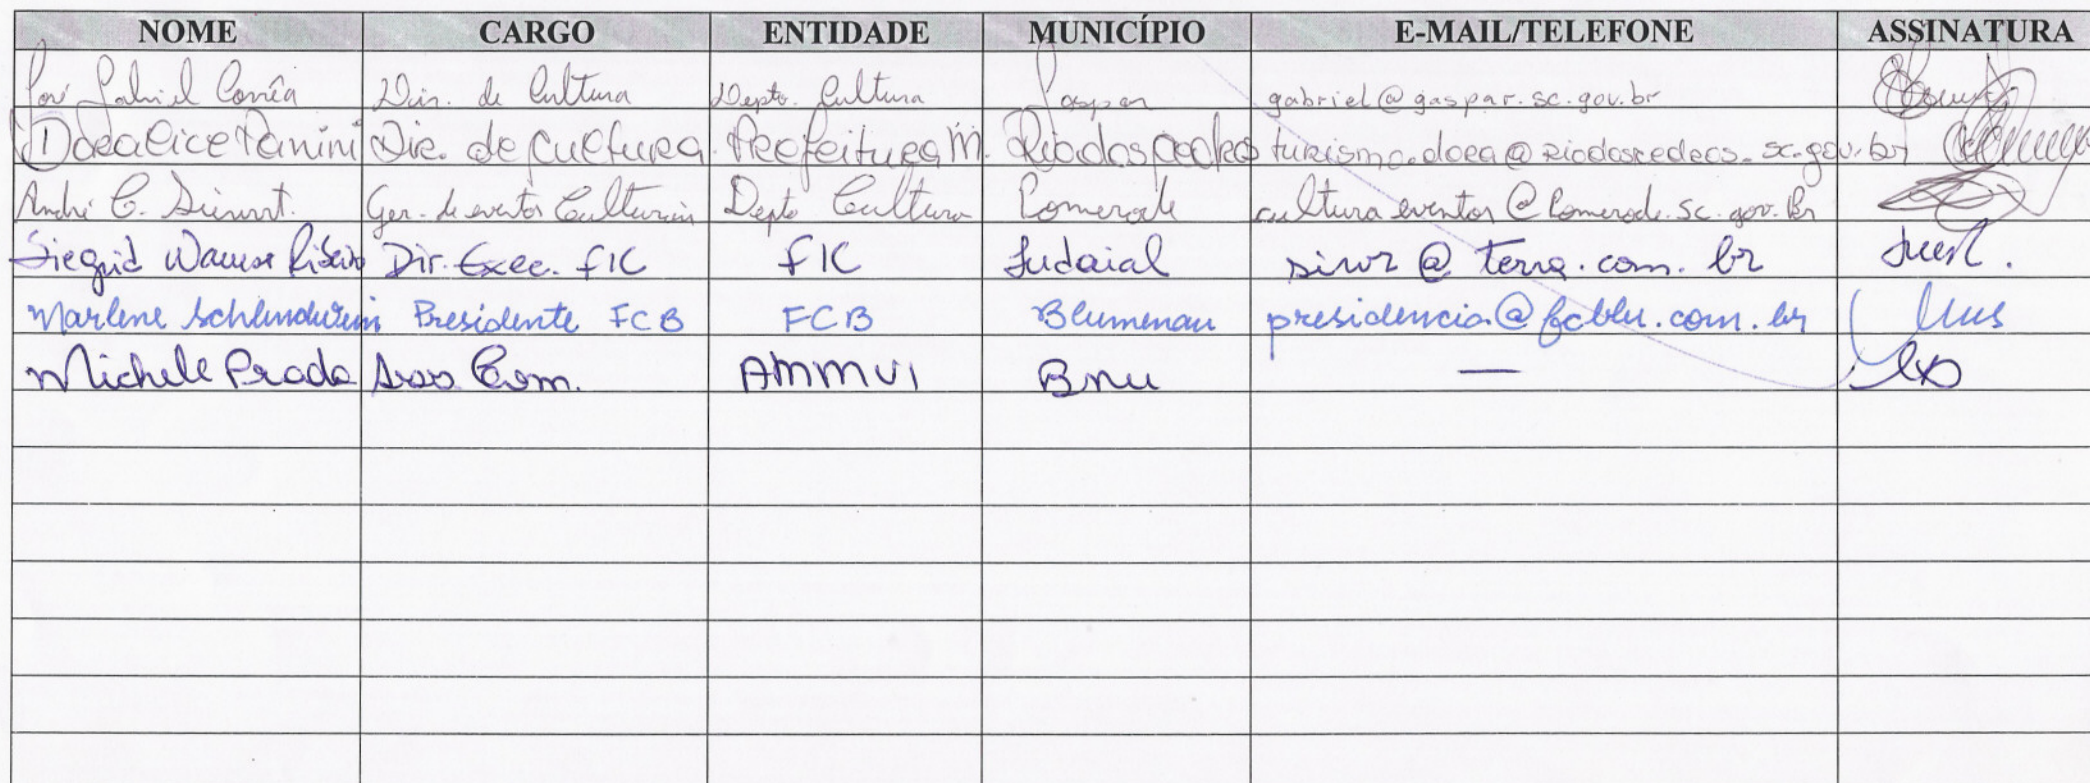 NOME CARGO ENTIDADE MUNICÍPIO E-MAIL/TELEFONE ASSINATURA
Gabriel Corrêa Dir. de Cultura Depto. Cultura Gaspar gabriel@gaspar.sc.gov.br
Doralice Panini Dir. de Cultura Prefeitura M. Rio dos Cedros turismo.dora@riodoscedros.sc.gov.br
André C. Ger. de eventos Culturais Depto Cultura Pomerode cultura eventos@Pomerode.sc.gov.br
Siegrid Ribeiro Dir. Exec. FIC FIC Indaial sirwr@terra.com.br
Marlene Schlindwein Presidente FCB FCB Blumenau presidencia@fcblu.com.br
Michele Prada Asses. Com. AMMVI Bnu —